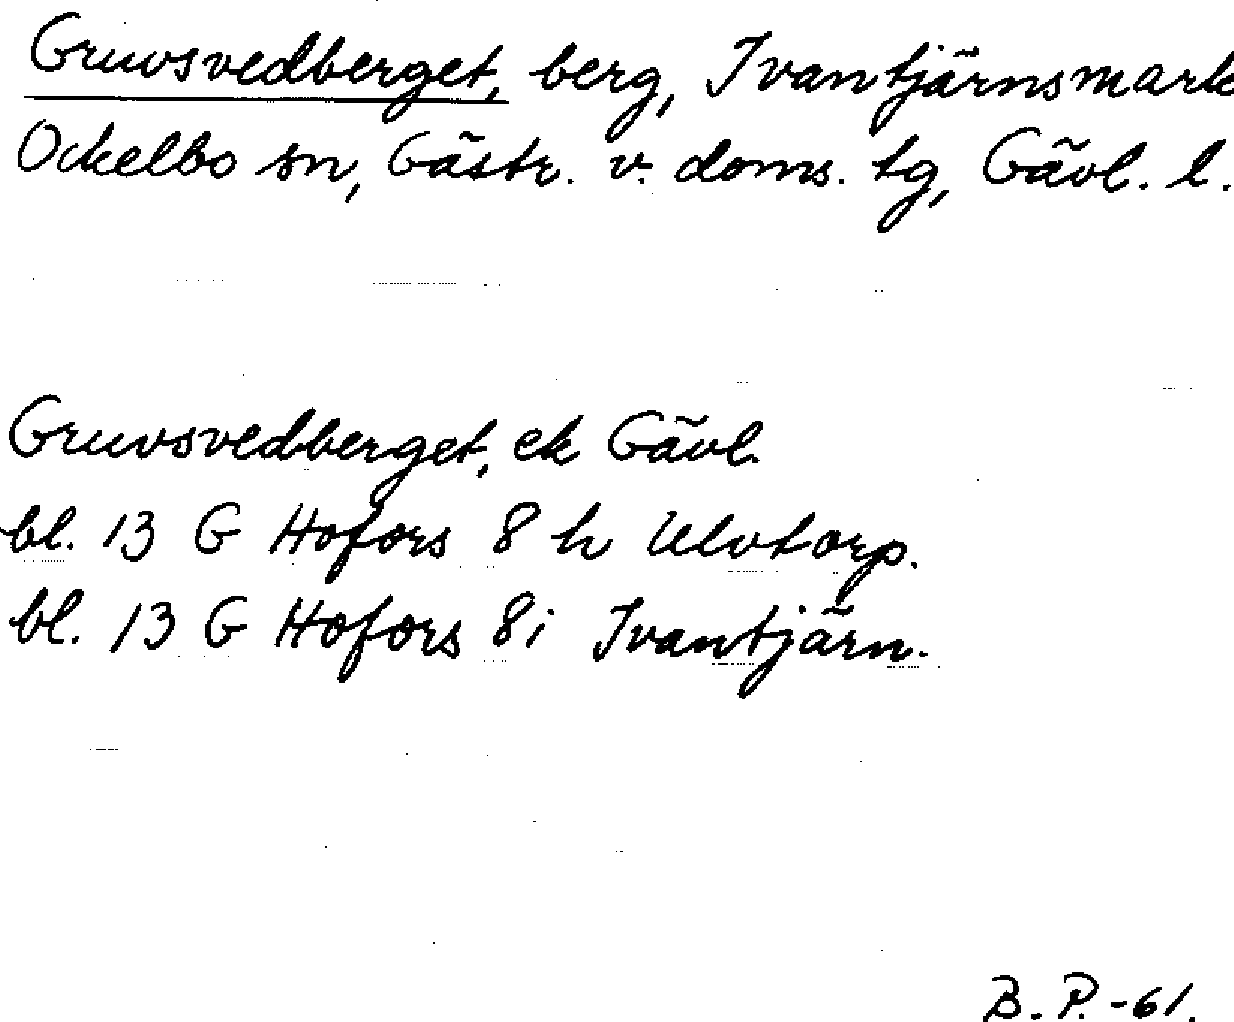 Gruvsvedberget, berg, Ivantjärnsmark
Ockelbo sn, Gästr. v. doms. tg, Gävl. l.
Gruvsvedberget, ek Gävl.
bl. 13 G Hofors 8 h Ulvtorp.
bl. 13 G Hofors 8i Ivantjärn.
B. P. -61.